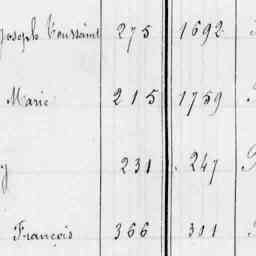 Joseph Toussaint 275 1692
Marie 215 1759
y 231 247
François 366 301